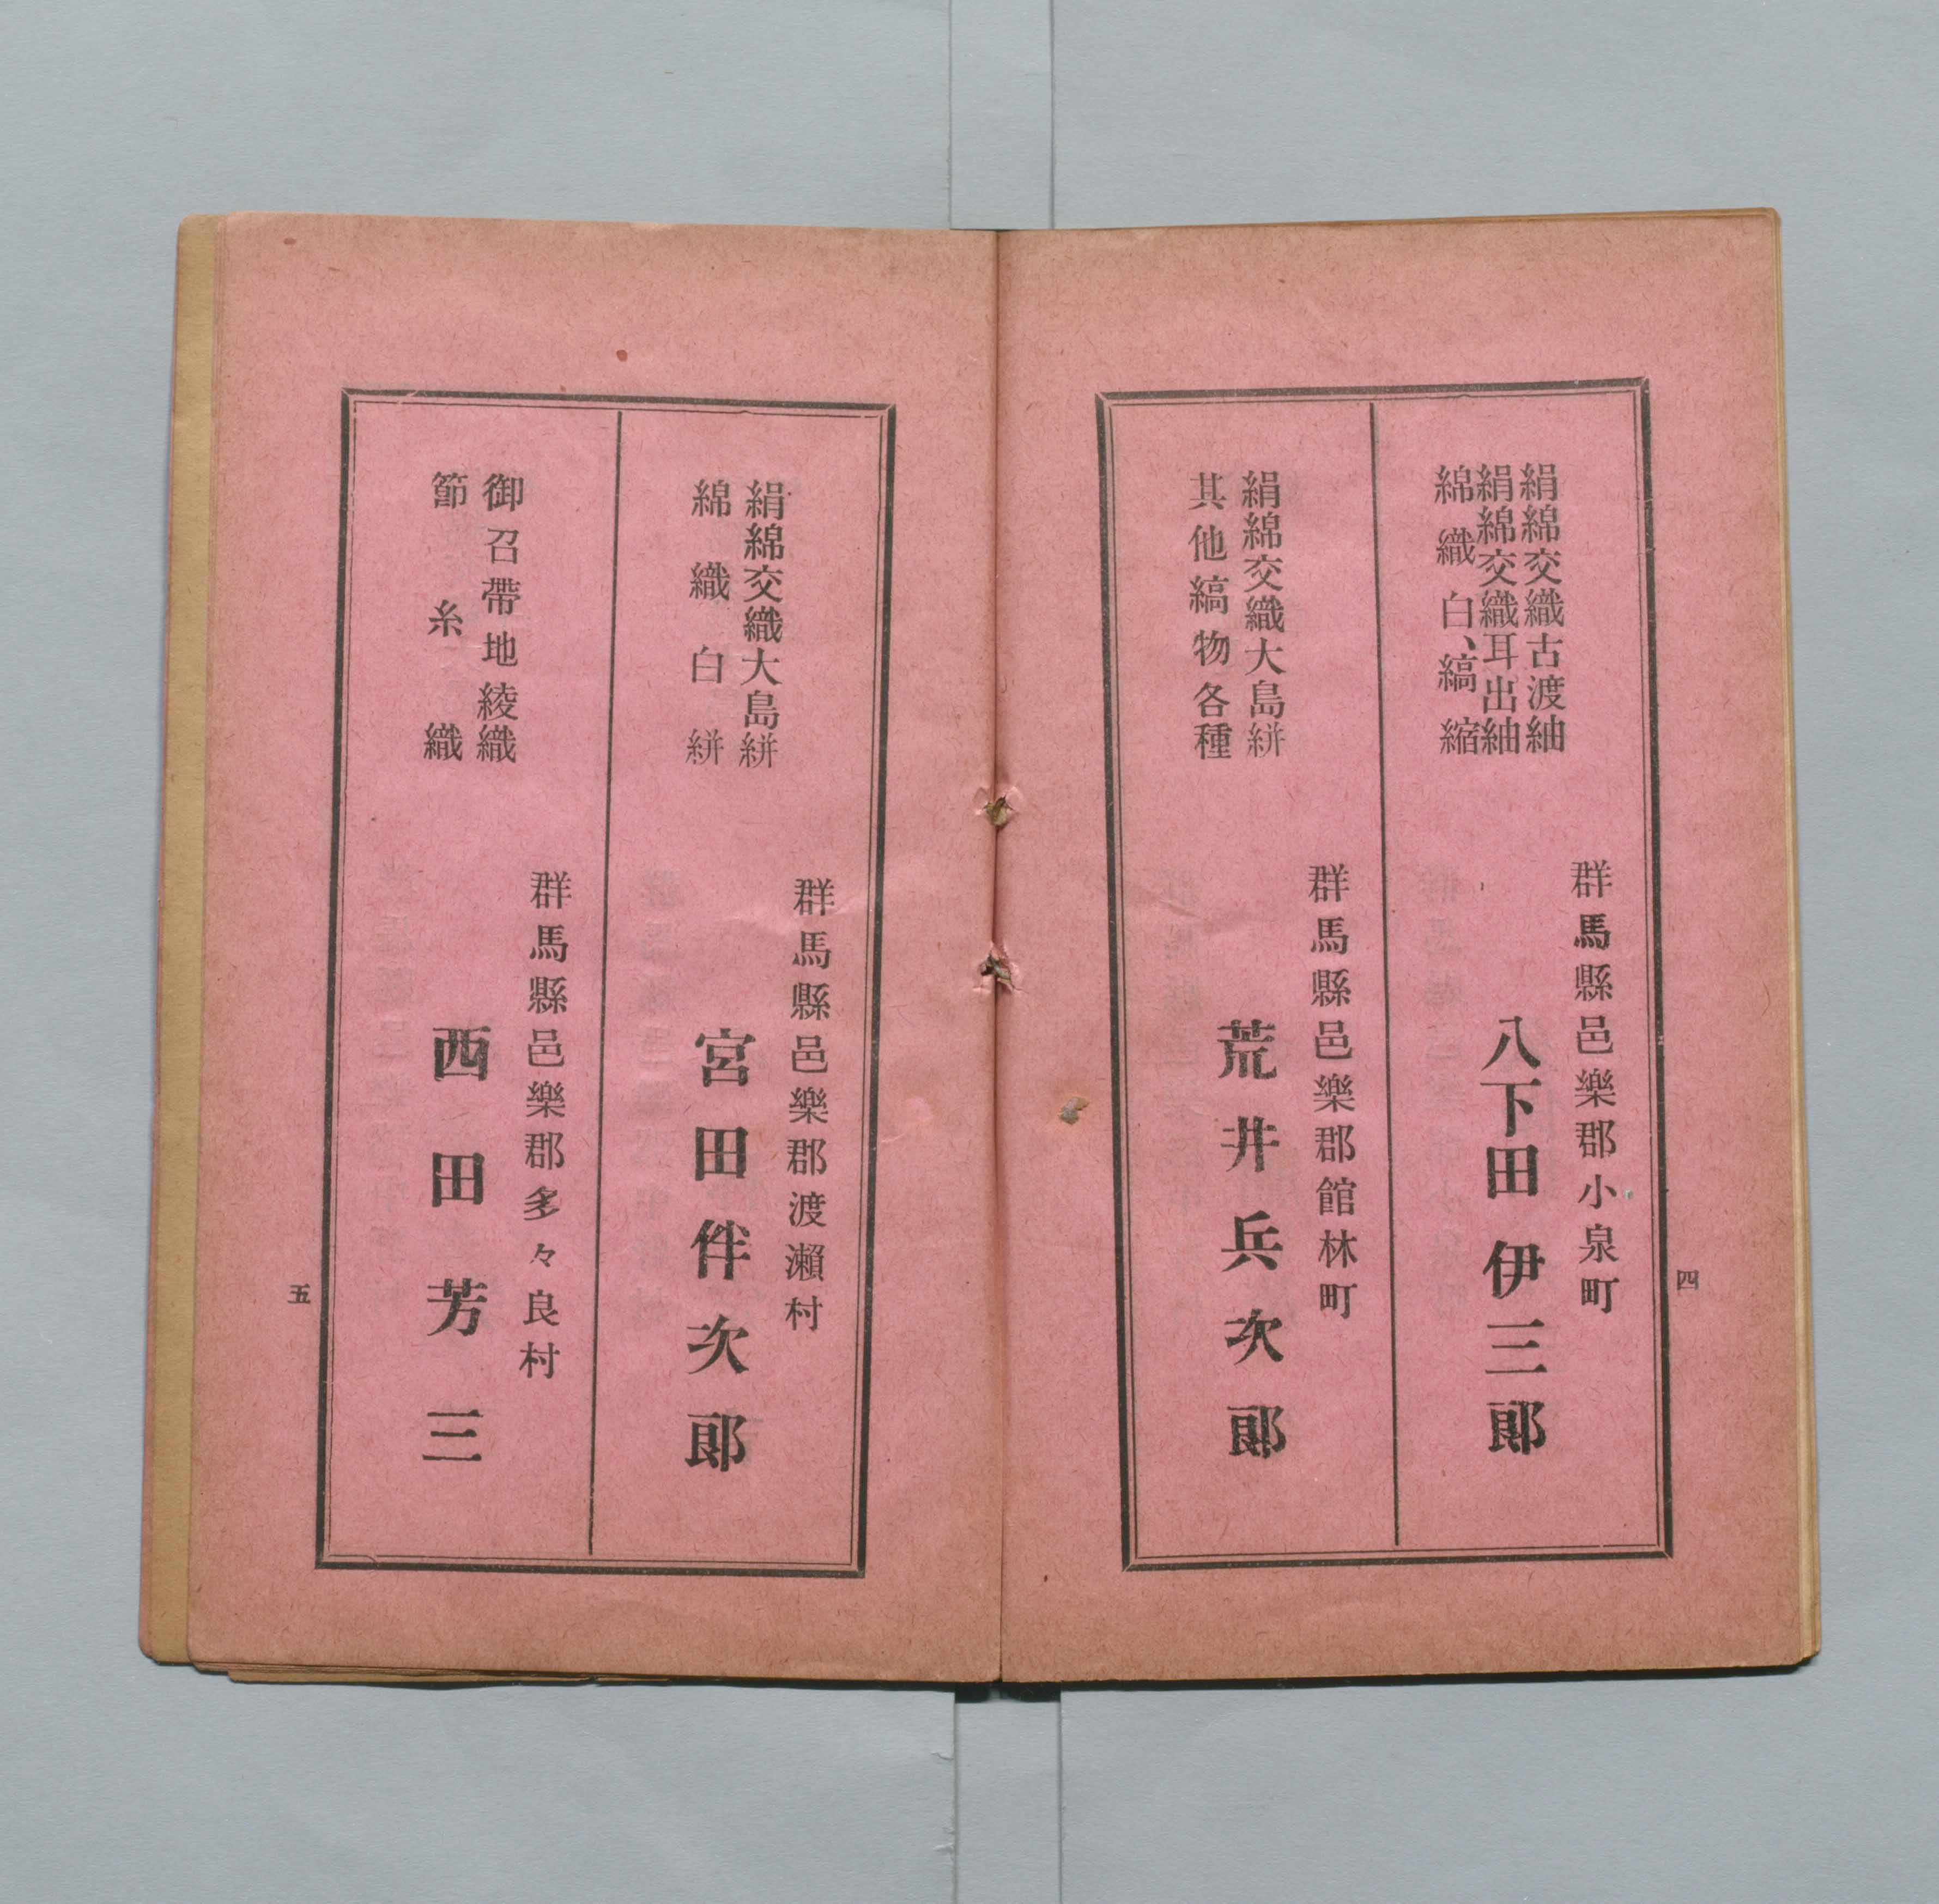 絹綿交織古渡紬
絹綿交織耳出紬
綿織白、縞縮
群馬縣邑樂郡小泉町
八下田伊三郞
絹綿交織大島絣
其他縞物各種
群馬縣邑樂郡館林町
荒井兵次郞
四
絹綿交織大島絣
綿織白絣
群馬縣邑樂郡渡瀨村
宮田伴次郞
御召帶地綾織
節糸織
群馬縣邑樂郡多々良村
西田芳三
五